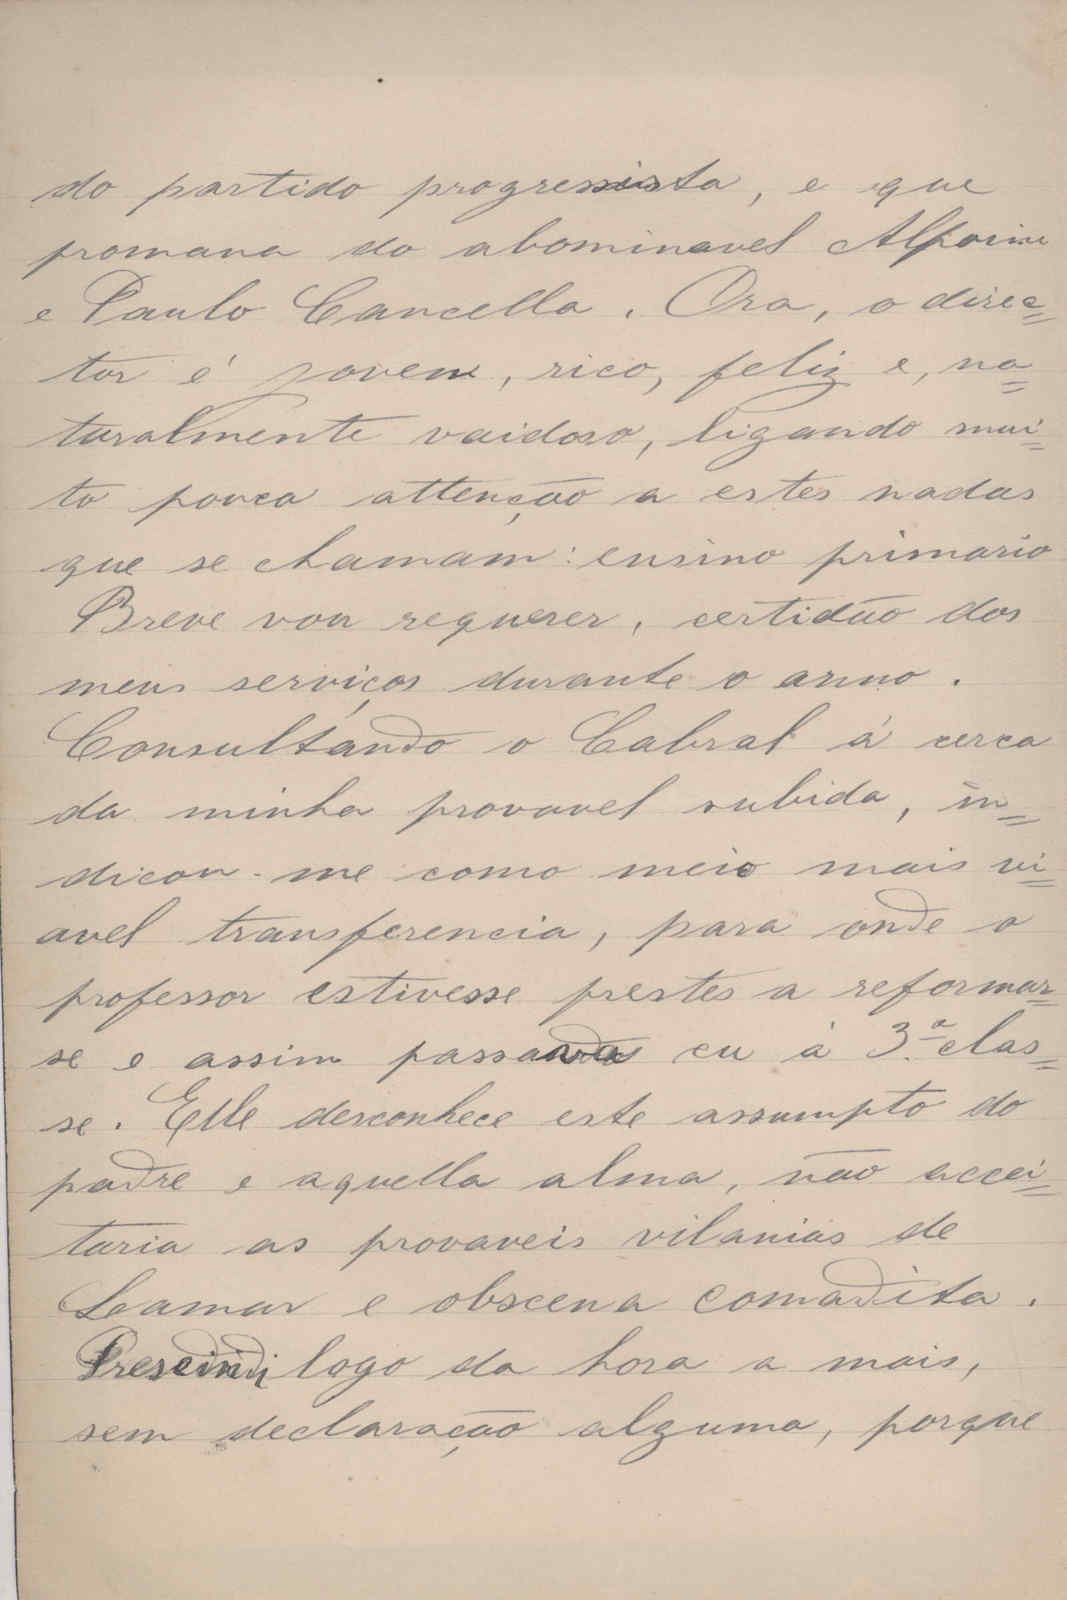 do partido progressista, e que
promana do abominavel Alpoim
e Paulo Cancella. Ora, o direc=
tor é joven, rico, feliz e, na=
turalmente vaidoso, ligando mui=
to pouca attenção a estes nadas
que se chamam: ensino primario
Breve vou requerer, certidão dos
meus serviços durante o anno.
Consultando o Cabral á cerca
da minha provavel subida, in=
dicou-me como meio mais vi=
avel transferencia, para onde o
professor estivesse prestes a reformar=
se e assim passava eu á 3.ª clas=
se. Elle desconhece este assumpto do
padre e aquella alma, não accei=
taria as provaveis vilanias de
Leamar e obscena comadita.
Prescindi logo da hora a mais,
sem declaração alguma, porque